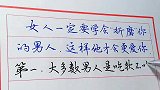 女人一定要学会折磨你
的男人.这样他才会更爱你
第一.大多数男人是吃软不